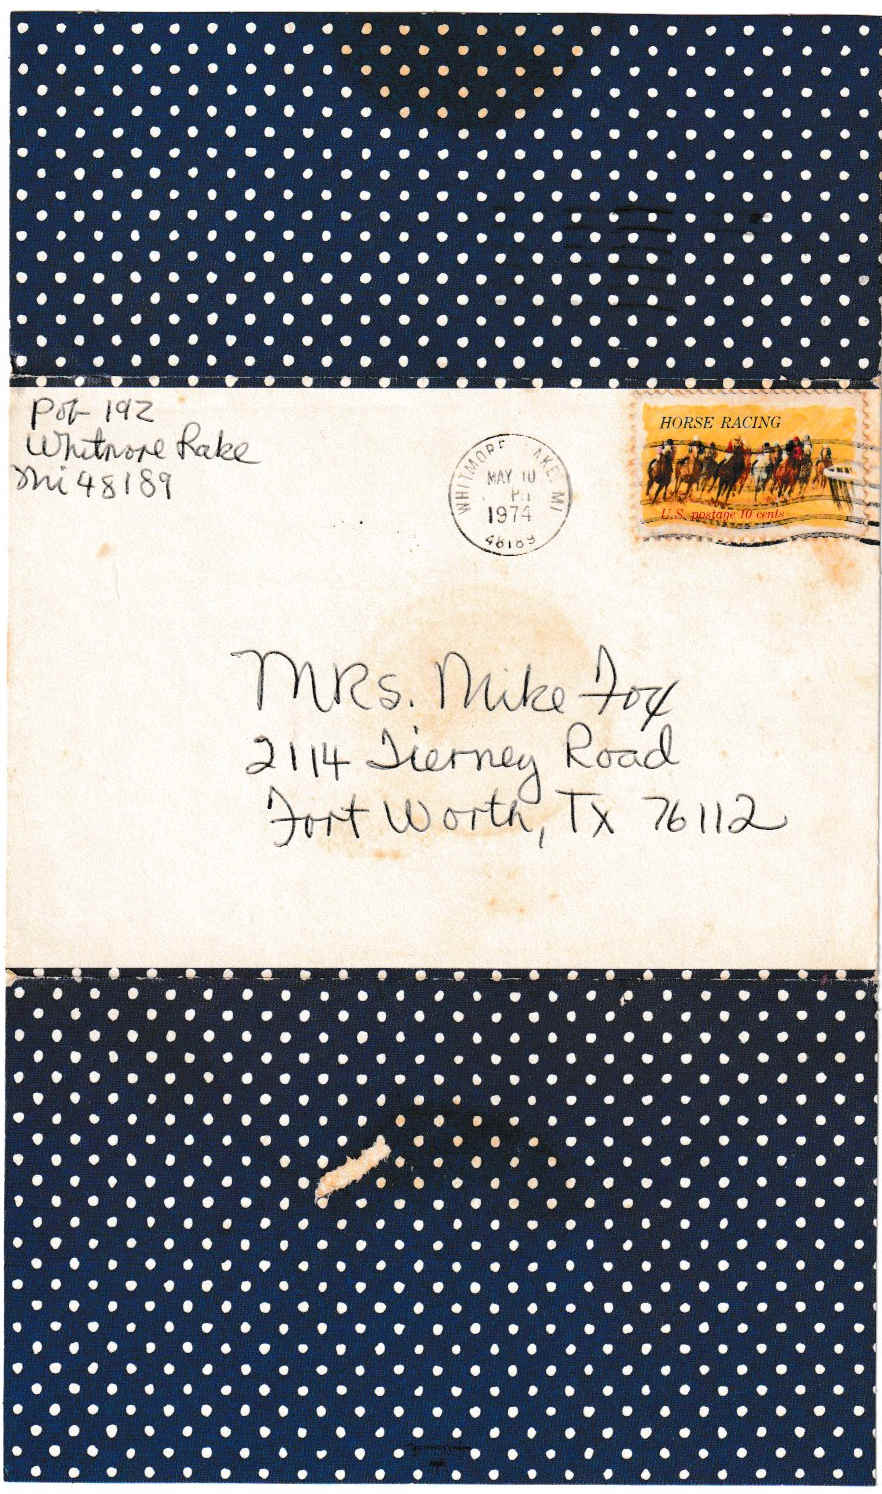 POB 192
Whitmore Lake
Mi 48189
WHITMORE LAKE, MI
MAY 10
PM
1974
48189
HORSE RACING
U.S. postage 10 cents
MRs. Mike Fox
2114 Tierney Road
Fort Worth, Tx 76112